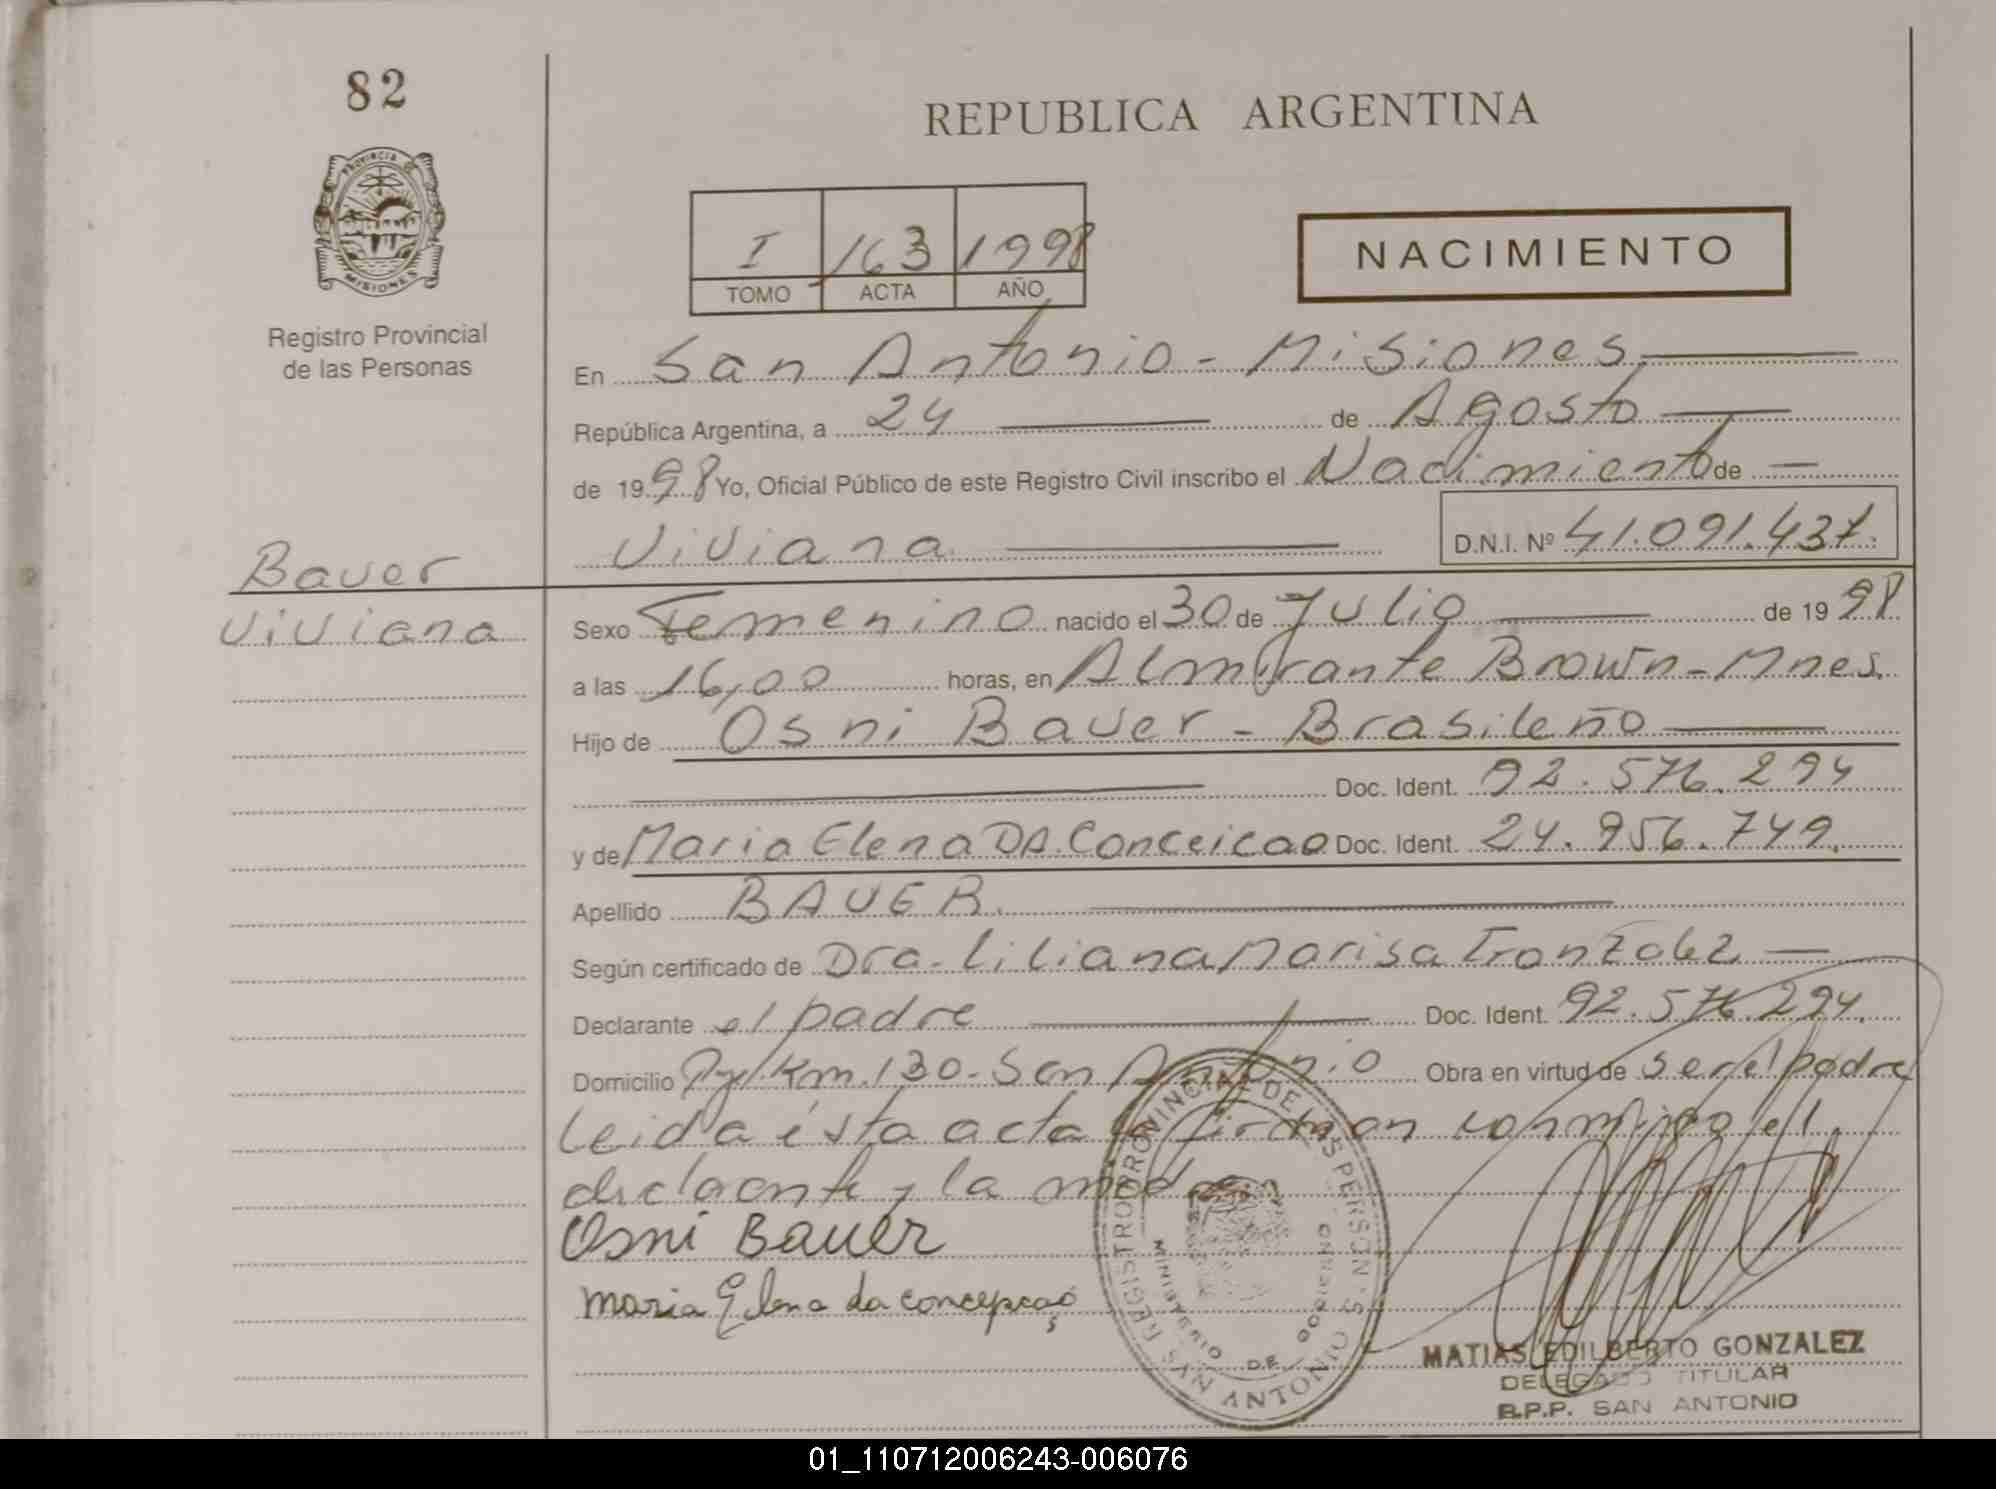 82
REPUBLICA ARGENTINA
PROVINCIA DE
MISIONES
Registro Provincial
de las Personas
I 163 1998
TOMO ACTA AÑO
NACIMIENTO
En San Antonio - Misiones
República Argentina, a 24 de Agosto
de 1998 Yo, Oficial Público de este Registro Civil inscribo el Nacimiento de
Viviana D.N.I. Nº 41.091.437.
Bauer
Viviana
Sexo Femenino nacido el 30 de Julio de 1998
a las 16,00 horas, en Almirante Brown - Mnes.
Hijo de Osni Bauer - Brasileño
Doc. Ident. 92.576.294
y de Maria Elena DA. Conceicao Doc. Ident. 24.956.749.
Apellido BAUER.
Según certificado de Dra. Liliana Marisa
Declarante el padre Doc. Ident. 92.576.294.
Domicilio Km. 130 - San Antonio Obra en virtud de ser el padre
Leida ésta acta firman conmigo el
declarante y la madre
Osni Bauer
Maria Elena da concepcao
REGISTRO PROVINCIAL DE LAS PERSONAS
MINISTERIO DE GOBIERNO
SAN ANTONIO
MATIAS EDILBERTO GONZALEZ
DELEGADO TITULAR
R.P.P. SAN ANTONIO
01_110712006243-006076